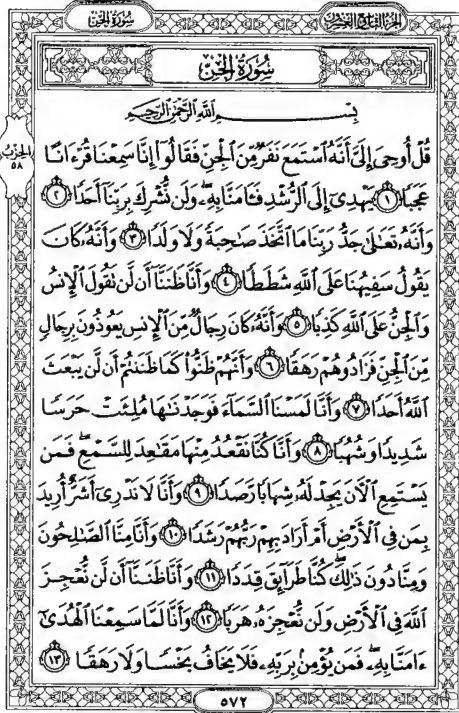 سُورَةُ الجِنّ
الجُزْءُ التَّاسِعُ وَالعِشْرُونَ
سُورَةُ الجِنّ
بِسْمِ اللَّهِ الرَّحْمَٰنِ الرَّحِيمِ
الحِزْبُ
٥٨
قُلْ أُوحِيَ إِلَيَّ أَنَّهُ ٱسْتَمَعَ نَفَرٌ مِّنَ ٱلْجِنِّ فَقَالُوٓا۟ إِنَّا سَمِعْنَا قُرْءَانًا
عَجَبًا ﴿١﴾ يَهْدِىٓ إِلَى ٱلرُّشْدِ فَـَٔامَنَّا بِهِۦ ۖ وَلَن نُّشْرِكَ بِرَبِّنَآ أَحَدًا ﴿٢﴾
وَأَنَّهُۥ تَعَٰلَىٰ جَدُّ رَبِّنَا مَا ٱتَّخَذَ صَٰحِبَةً وَلَا وَلَدًا ﴿٣﴾ وَأَنَّهُۥ كَانَ
يَقُولُ سَفِيهُنَا عَلَى ٱللَّهِ شَطَطًا ﴿٤﴾ وَأَنَّا ظَنَنَّآ أَن لَّن تَقُولَ ٱلْإِنسُ
وَٱلْجِنُّ عَلَى ٱللَّهِ كَذِبًا ﴿٥﴾ وَأَنَّهُۥ كَانَ رِجَالٌ مِّنَ ٱلْإِنسِ يَعُوذُونَ بِرِجَالٍ
مِّنَ ٱلْجِنِّ فَزَادُوهُمْ رَهَقًا ﴿٦﴾ وَأَنَّهُمْ ظَنُّوا۟ كَمَا ظَنَنتُمْ أَن لَّن يَبْعَثَ
ٱللَّهُ أَحَدًا ﴿٧﴾ وَأَنَّا لَمَسْنَا ٱلسَّمَآءَ فَوَجَدْنَٰهَا مُلِئَتْ حَرَسًا
شَدِيدًا وَشُهُبًا ﴿٨﴾ وَأَنَّا كُنَّا نَقْعُدُ مِنْهَا مَقَٰعِدَ لِلسَّمْعِ ۖ فَمَن
يَسْتَمِعِ ٱلْـَٔانَ يَجِدْ لَهُۥ شِهَابًا رَّصَدًا ﴿٩﴾ وَأَنَّا لَا نَدْرِىٓ أَشَرٌّ أُرِيدَ
بِمَن فِى ٱلْأَرْضِ أَمْ أَرَادَ بِهِمْ رَبُّهُمْ رَشَدًا ﴿١٠﴾ وَأَنَّا مِنَّا ٱلصَّٰلِحُونَ
وَمِنَّا دُونَ ذَٰلِكَ ۖ كُنَّا طَرَآئِقَ قِدَدًا ﴿١١﴾ وَأَنَّا ظَنَنَّآ أَن لَّن نُّعْجِزَ
ٱللَّهَ فِى ٱلْأَرْضِ وَلَن نُّعْجِزَهُۥ هَرَبًا ﴿١٢﴾ وَأَنَّا لَمَّا سَمِعْنَا ٱلْهُدَىٰٓ
ءَامَنَّا بِهِۦ ۖ فَمَن يُؤْمِنۢ بِرَبِّهِۦ فَلَا يَخَافُ بَخْسًا وَلَا رَهَقًا ﴿١٣﴾
٥٧٢